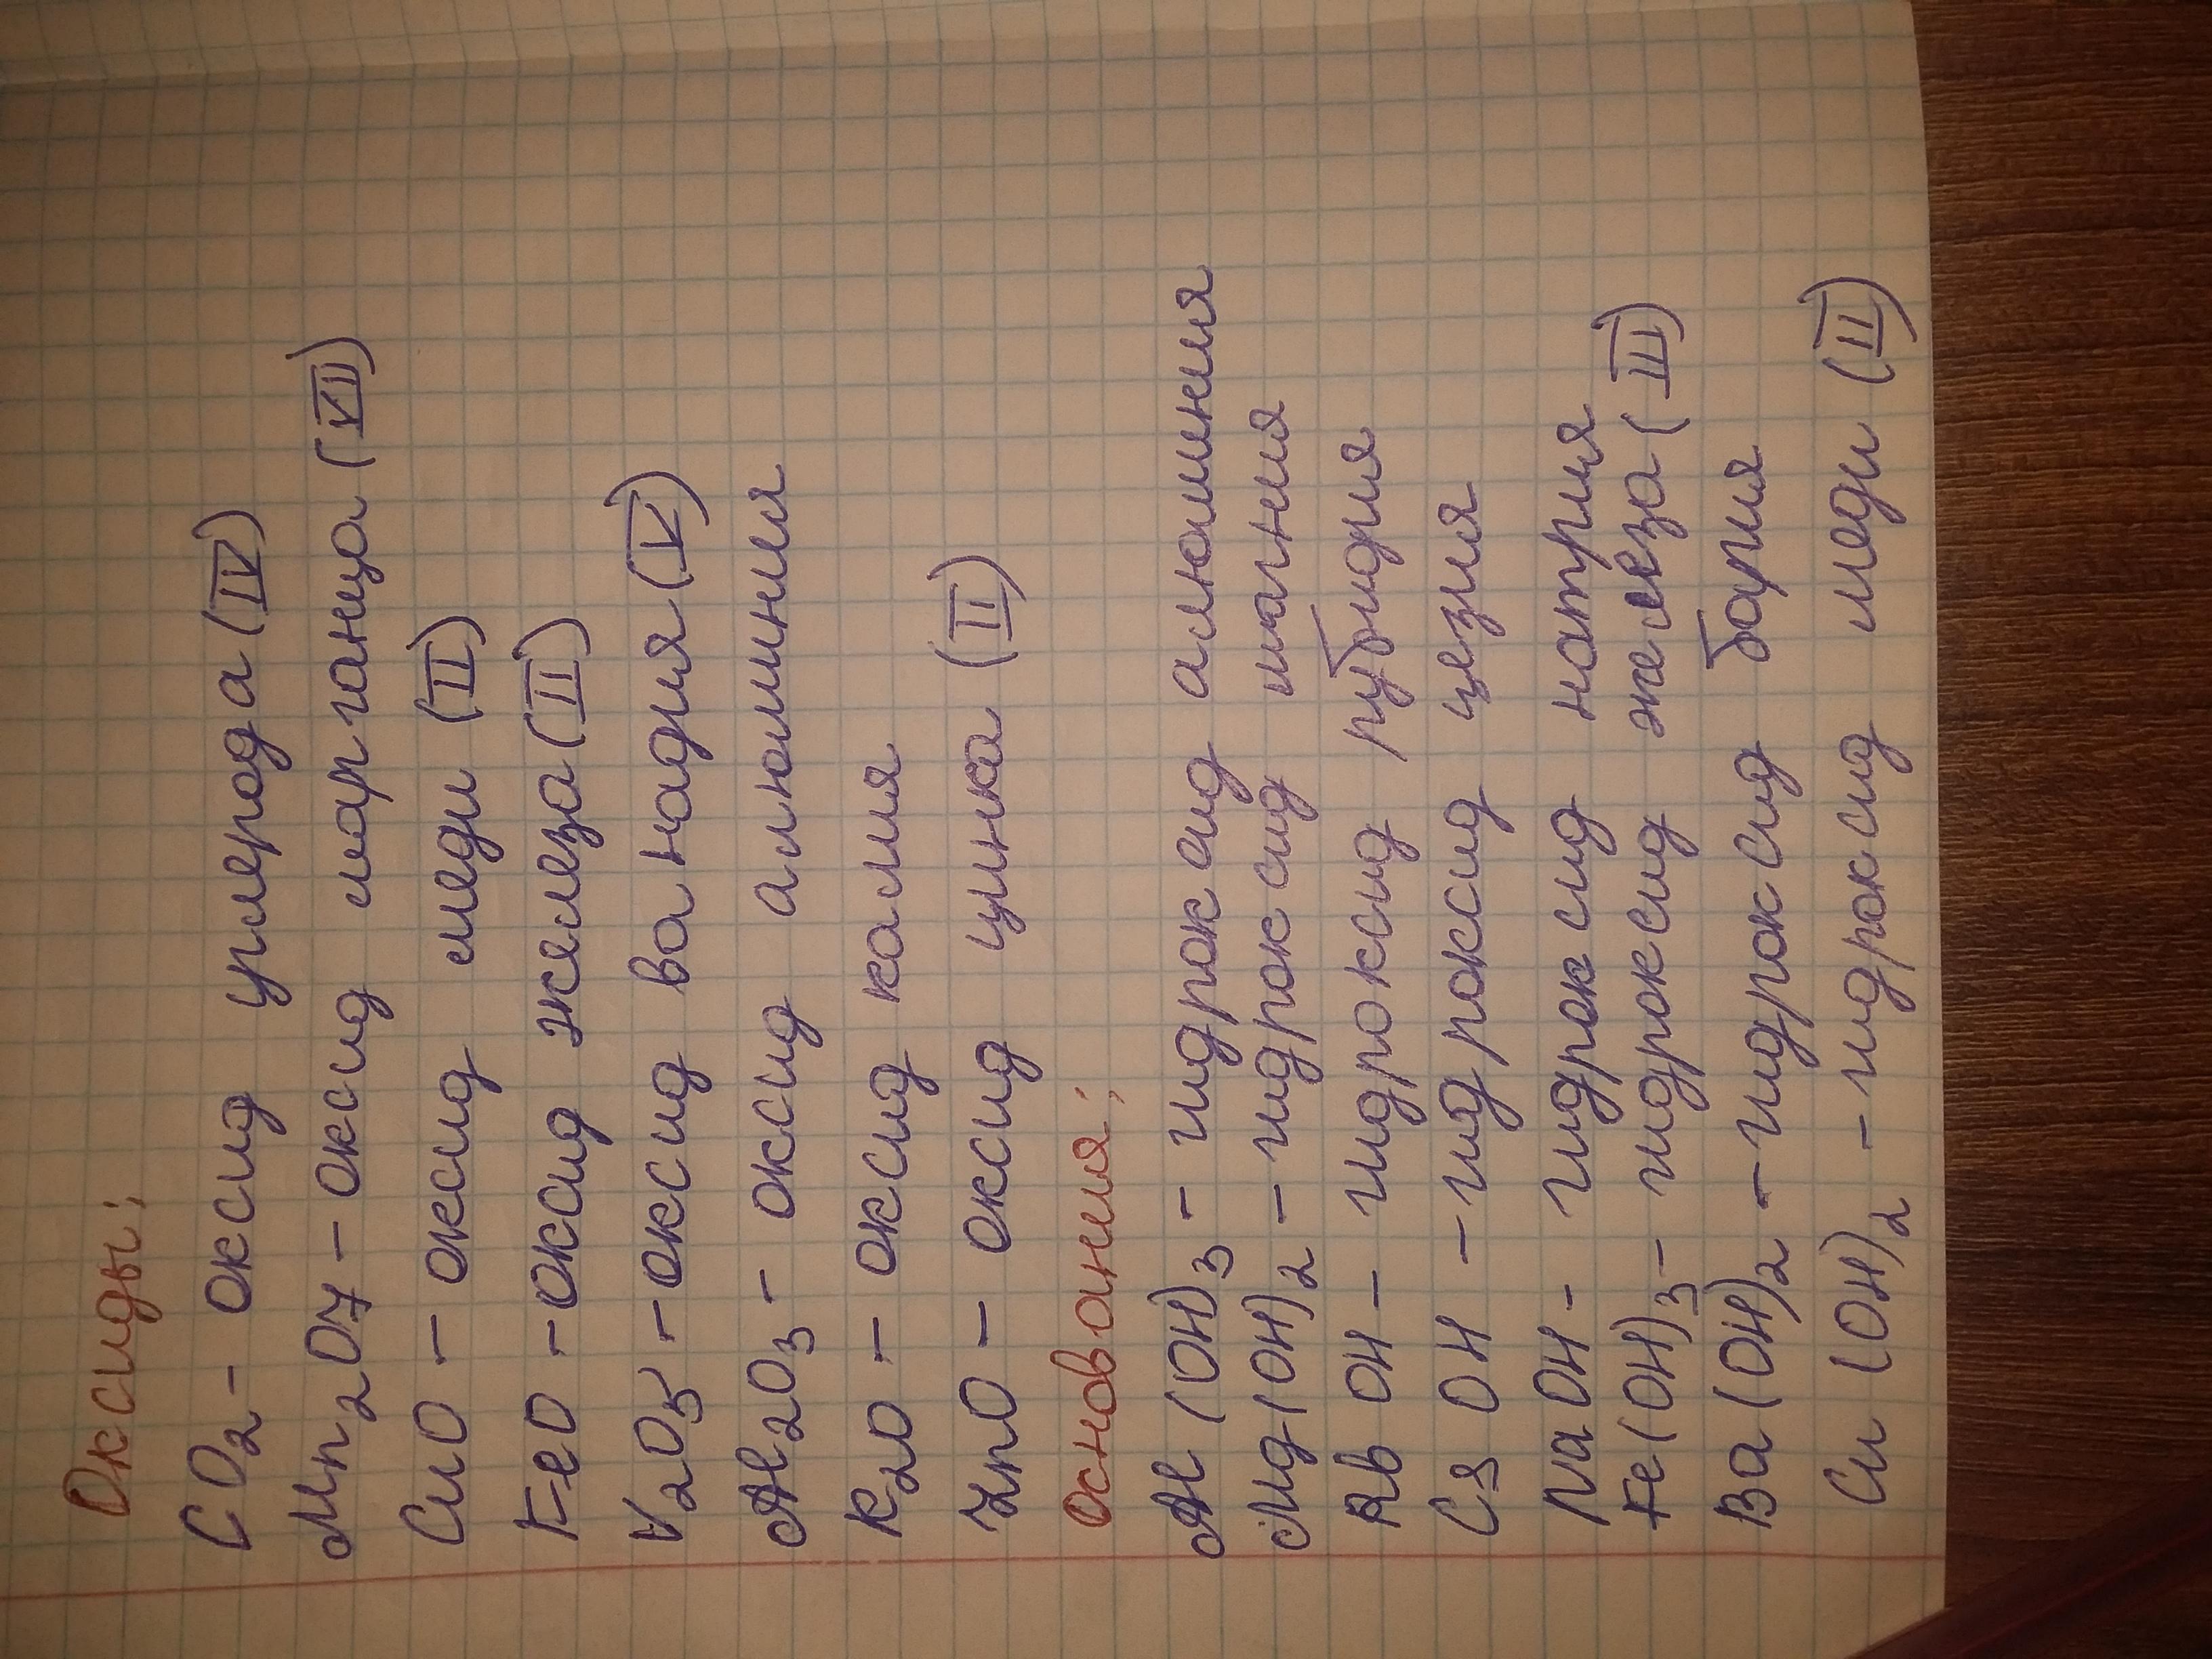 Оксиды:
CO2 - оксид углерода (IV)
Mn2O7 - оксид марганца (VI)
CuO - оксид меди (II)
FeO - оксид железа (II)
V2O5 - оксид ванадия (V)
Al2O3 - оксид алюминия
K2O - оксид калия
ZnO - оксид цинка (II)
Основания:
Al(OH)3 - гидроксид алюминия
Mg(OH)2 - гидроксид магния
RbOH - гидроксид рубидия
CsOH - гидроксид цезия
NaOH - гидроксид натрия
Fe(OH)3 - гидроксид железа (III)
Ba(OH)2 - гидроксид бария
Cu(OH)2 - гидроксид меди (II)